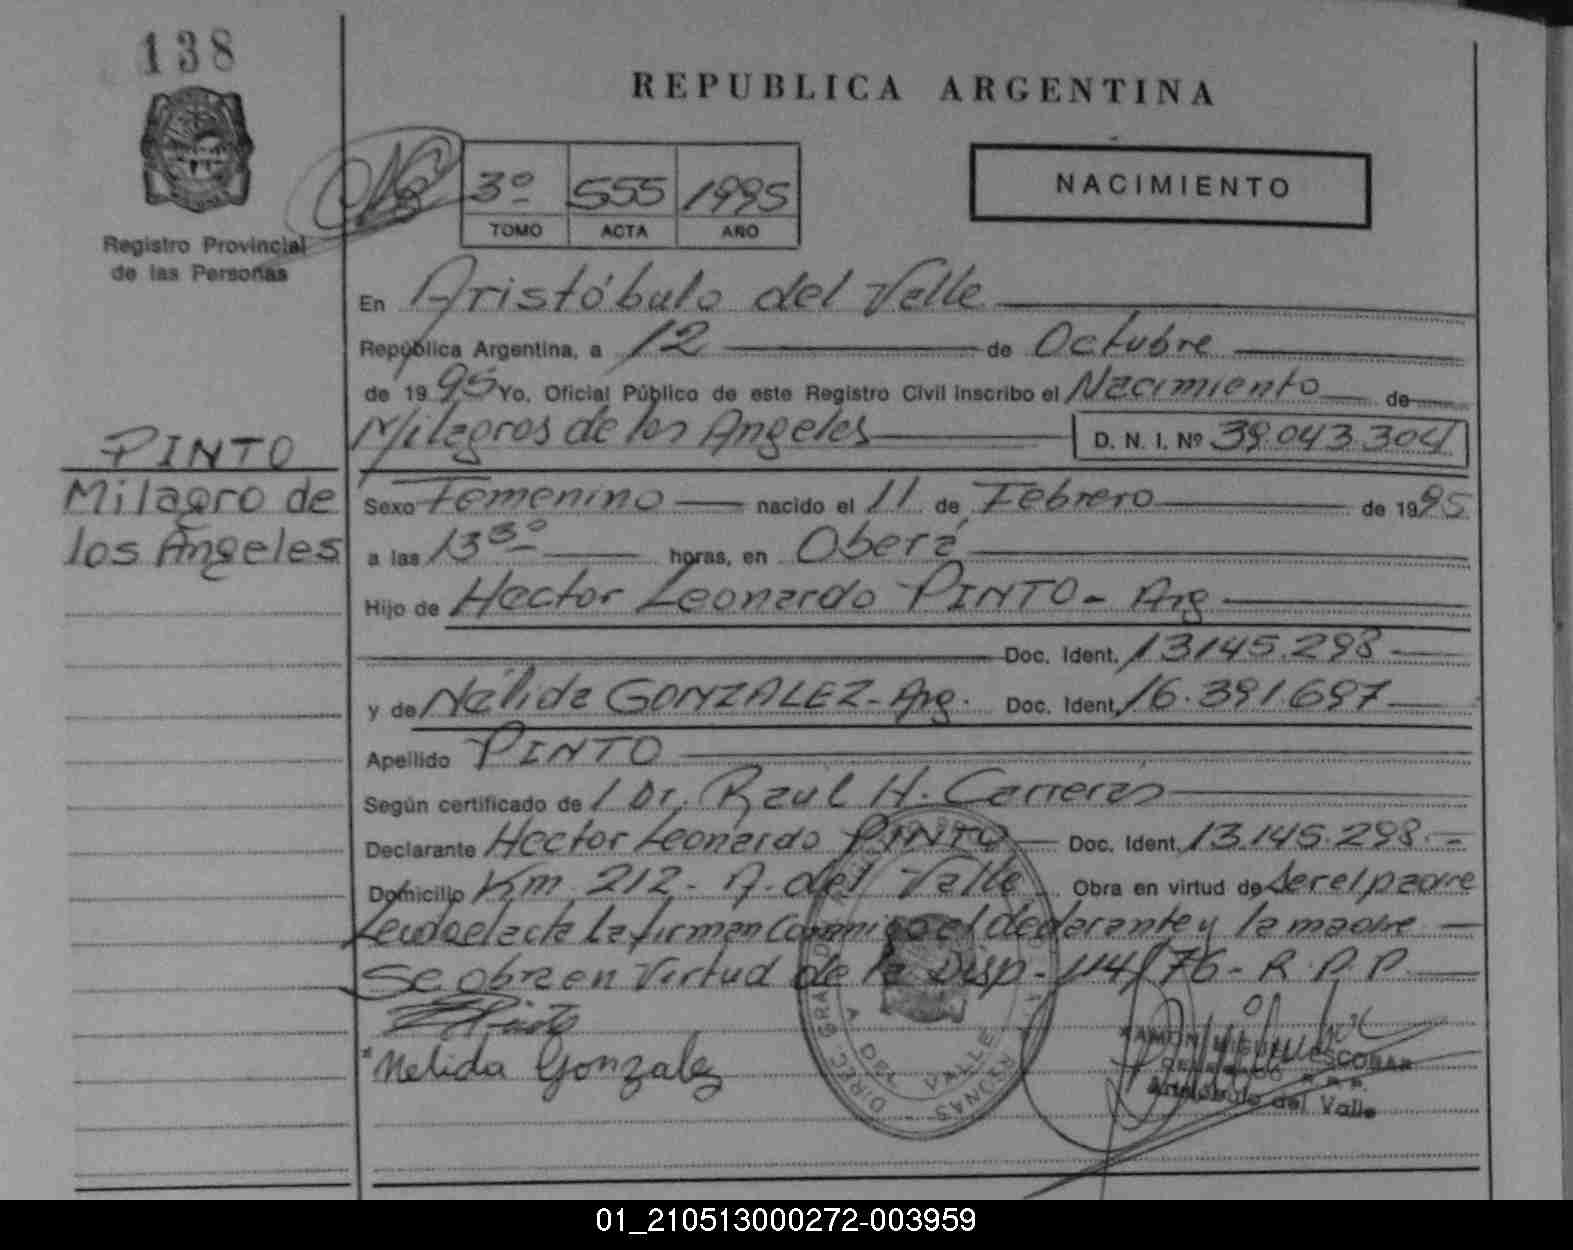 138
REPUBLICA ARGENTINA
Registro Provincial
de las Personas
3º 555 1995
TOMO ACTA AÑO
NACIMIENTO
En Aristóbulo del Valle
República Argentina, a 12 de Octubre
de 1995 Yo, Oficial Público de este Registro Civil inscribo el Nacimiento de
Milagros de los Angeles D. N. I. Nº 39.043.304
PINTO
Milagro de
los Angeles
Sexo Femenino nacido el 11 de Febrero de 1995
a las 13 30 horas, en Oberá
Hijo de Hector Leonardo PINTO - Arg
Doc. Ident. 13.145.298
y de Nélida GONZALEZ - Arg. Doc. Ident. 16.391.697
Apellido PINTO
Según certificado de l Dr. Raúl H. Carreras
Declarante Hector Leonardo PINTO Doc. Ident. 13.145.298.-
Domicilio Km. 212 - A. del Valle Obra en virtud de ser el padre
Leida el acta la firman conmigo el declarante y la madre
Se obra en virtud de la Disp - 114/76 - R.P.P.
Pinto
Nelida Gonzalez
RAMON MIGUEL ESCOBAR
DELEGADO R.P.P.
Aristóbulo del Valle
01_210513000272-003959